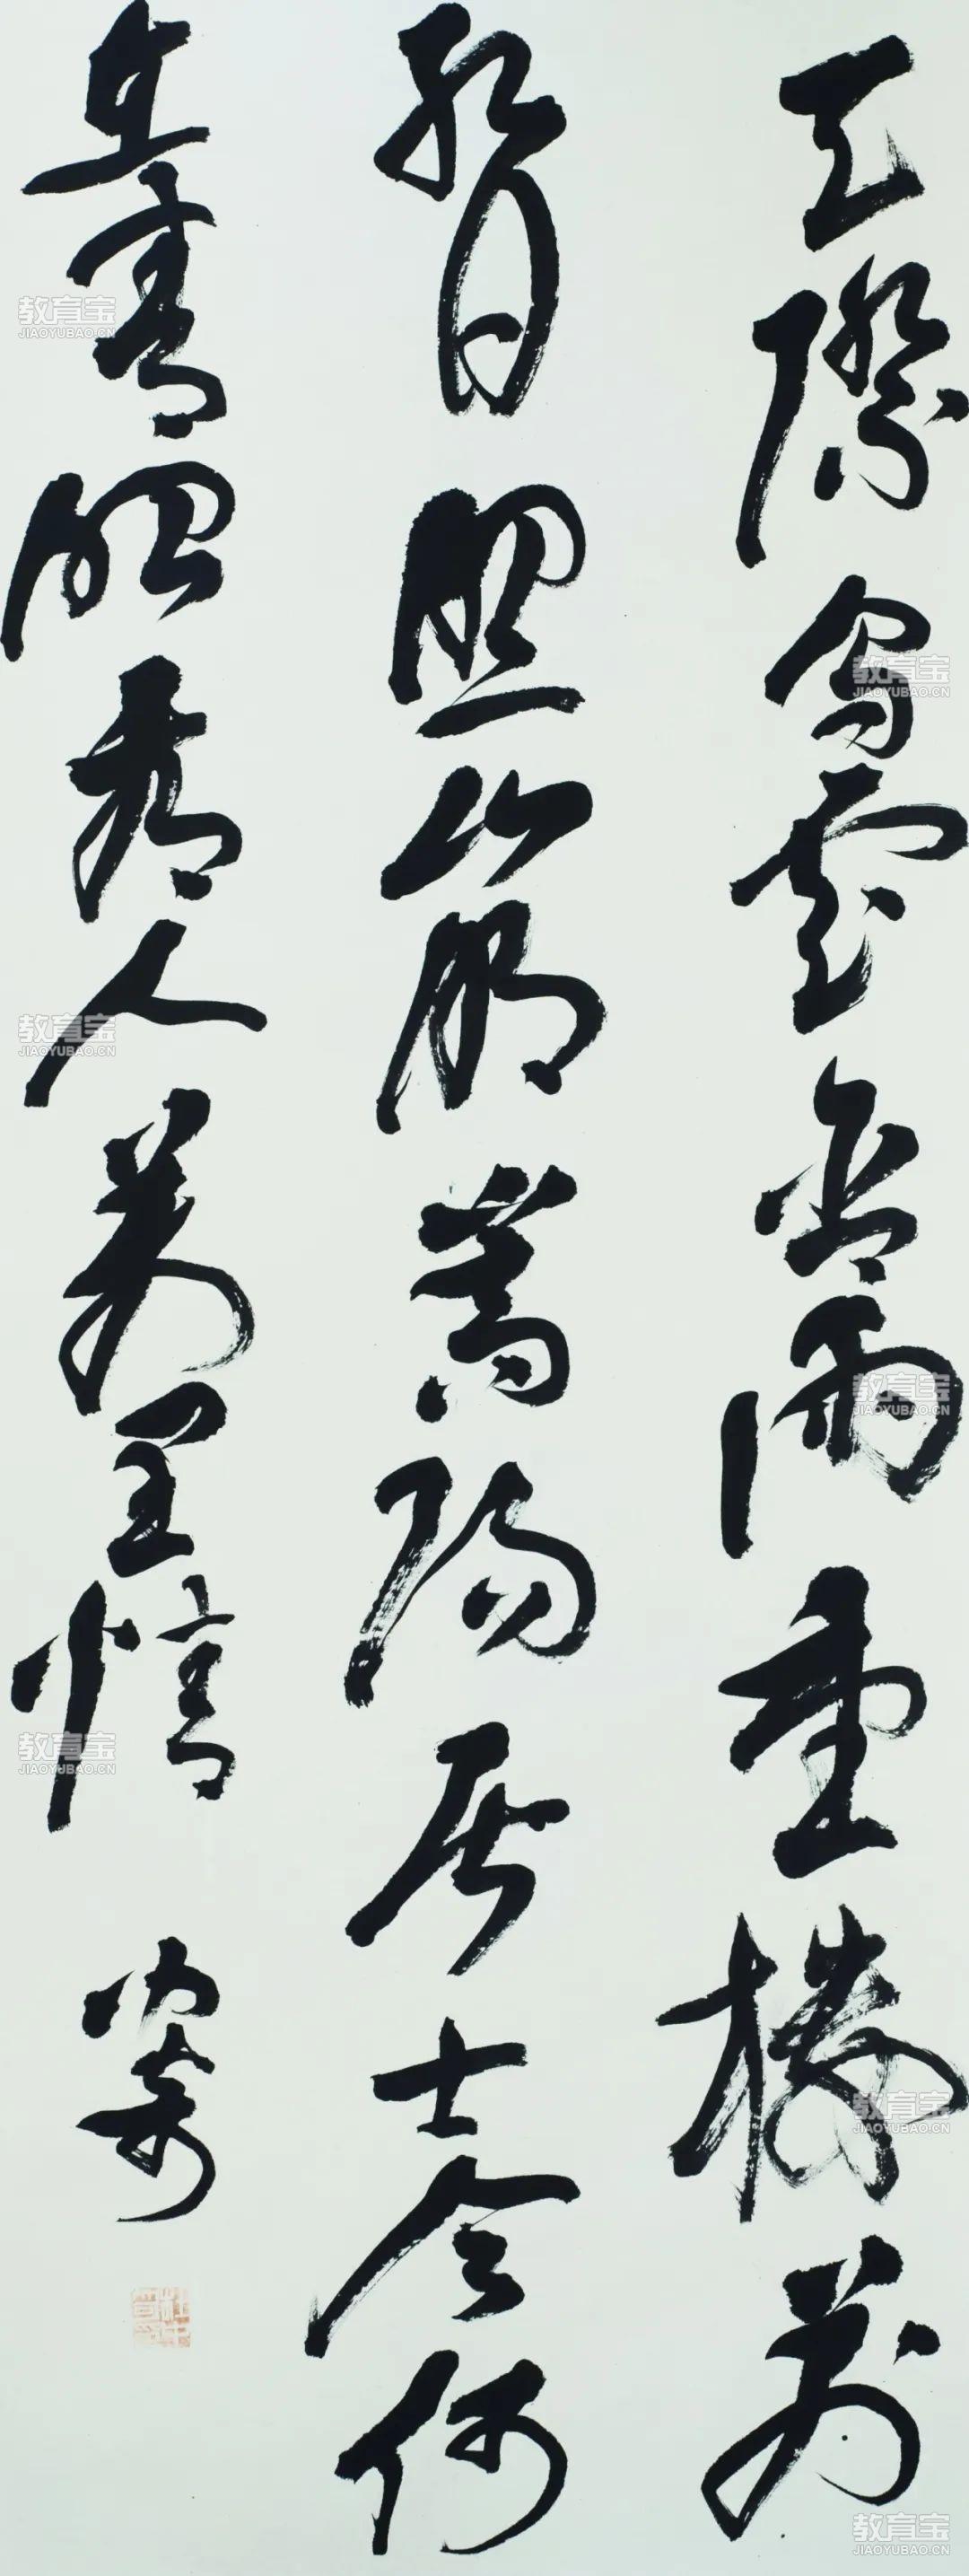 天際烏雲含雨重樓前
紅日照山明嵩陽居士今何
在青眼看人萬里情
教育宝
JIAOYUBAO.CN
教育宝
JIAOYUBAO.CN
教育宝
JIAOYUBAO.CN
教育宝
JIAOYUBAO.CN
教育宝
JIAOYUBAO.CN
教育宝
JIAOYUBAO.CN
教育宝
JIAOYUBAO.CN